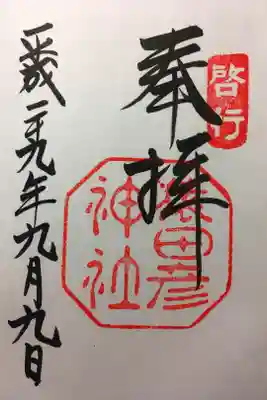 啓行
奉拝
猿田彦
神社
平成二十九年九月九日